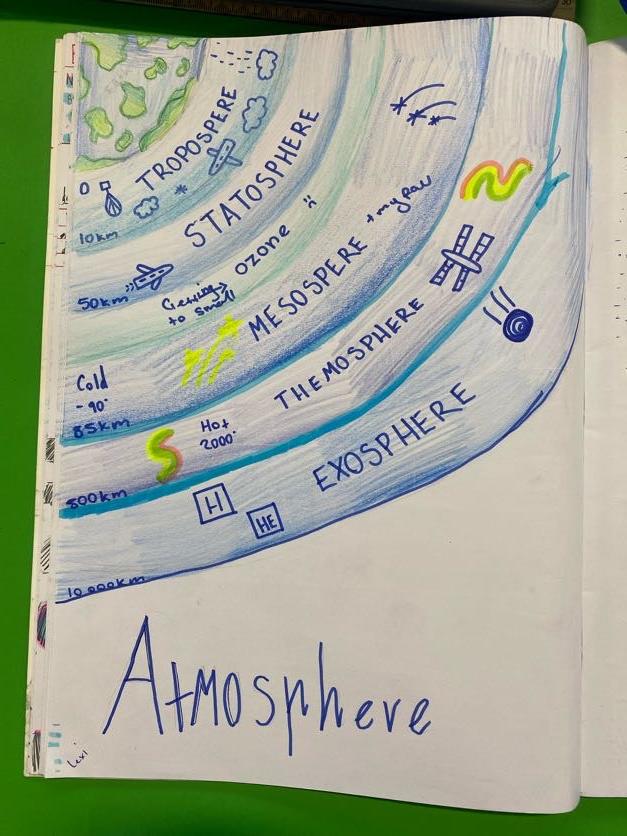 TROPOSPERE
0
10km
STATOSPHERE
50km
OZONE
Getting
to small
MESOSPERE
Cold
-90°
85km
THEMOSPHERE
Hot
2000°
500km
EXOSPHERE
H
HE
10,000km
Atmosphere
Lexi